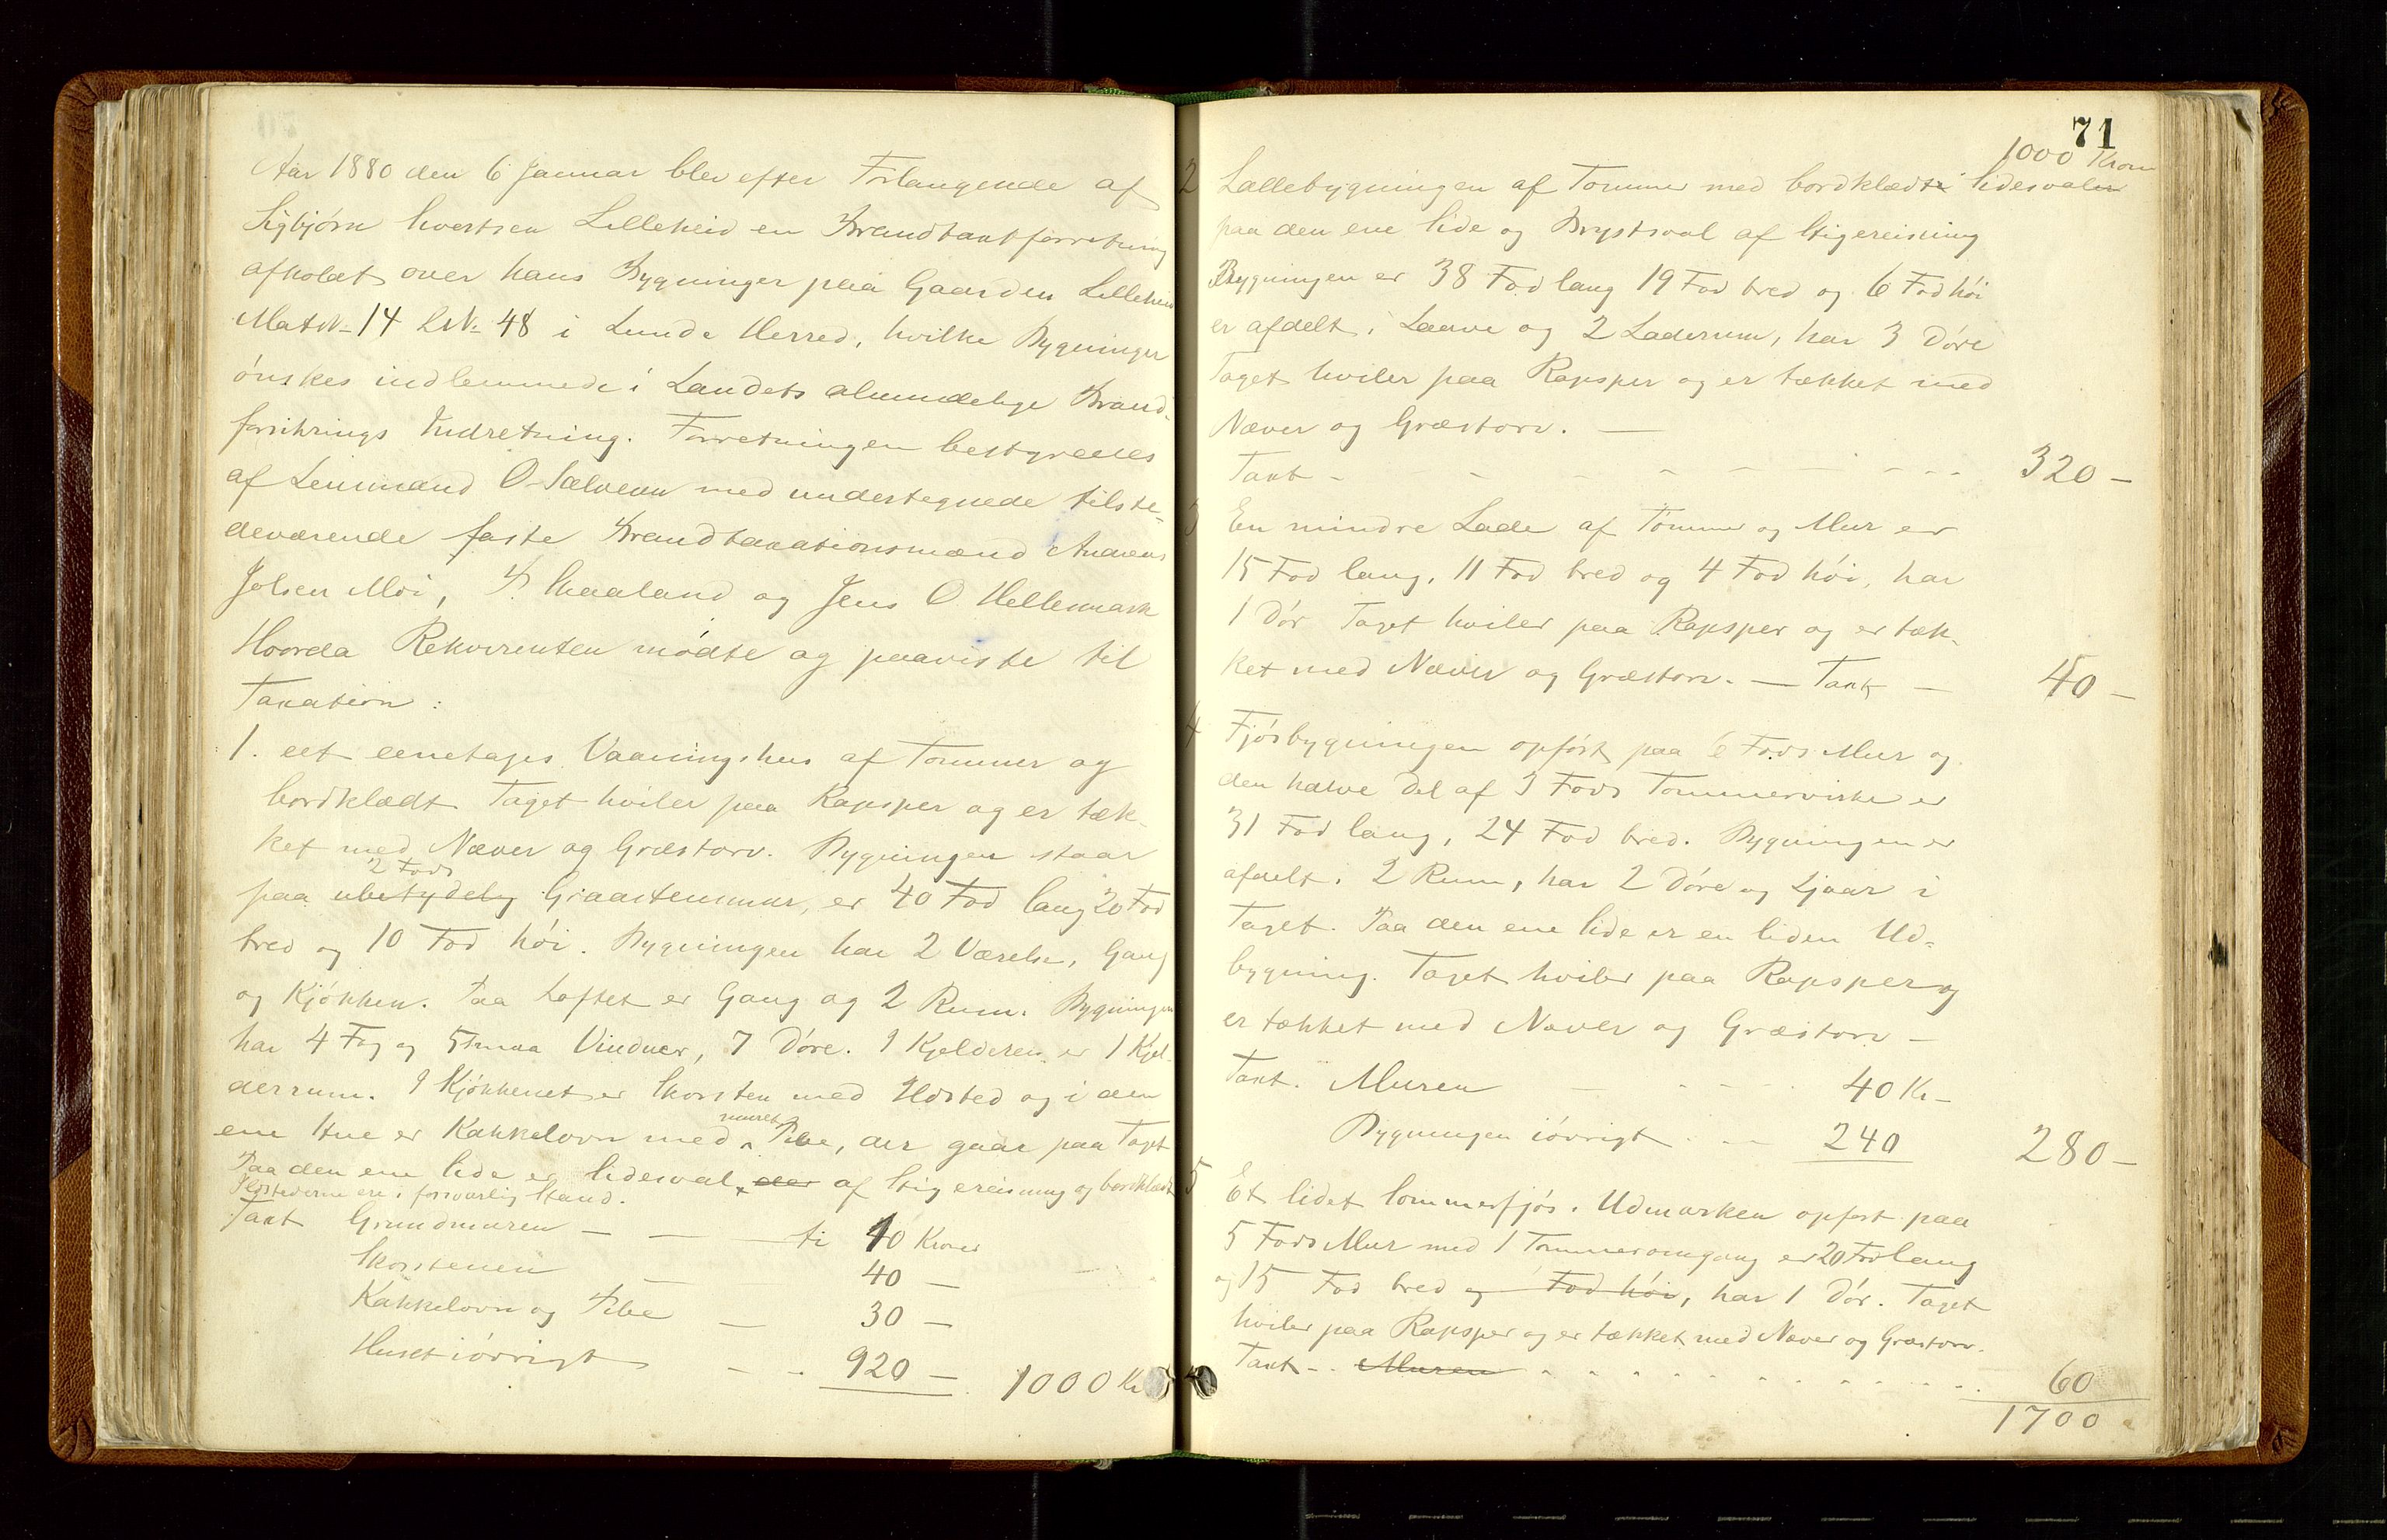 Aar 1880 den 6 Januar blev efter Forlangende af
Sigbjørn Sivertsen Lilleheid en Brandtaxtforretning
afholdt over hans Bygninger paa Gaarden Lilleheid
Mat№ 14 L№ 48 i Lunde Herred, hvilke Bygninger
ønskes indlemmede i Landets almindelige Brand-
forsikrings Indretning. Forretningen bestyredes
af Lensmand O Salvesen med undertegnede tilste-
deværende faste Brandtaxationsmænd Andreas
Jolsen Moi, P. Skaaland og Jens O Hellemark
Hovda Rekvirenten mødte og paaviste til
Taxation:
1. eet eenetages Vaaningshus af Tømmer og
bordklædt Taget hviler paa Rapsper og er tæk-
ket med Næver og Græstorv. Bygningen staar
2 Fods
paa ubetydelig Graastensmur, er 40 Fod lang 20 Fod
bred og 10 Fod høi. Bygningen har 2 Værelser, Gang
og Kjøkken. Paa Loftet er Gang og 2 Rum. Bygningen
har 4 Fag og 5 smaa Vinduer, 7 Døre. I Kjelderen er 1 Kjel-
derrum. I Kjøkkenet er Skorsten med Ildsted og i den
muret
ene Stue er Kakkelovn med Pibe, der gaar paa Taget
Paa den ene Side er Sidesval, der af Stigereisning og bordklædt
Ildstederne ere i forsvarlig Stand.
Taxt Grundmuren — — ti 10 Kroner
Skorstenen — 40 —
Kakkelovn og Pibe — 30 —
Huset iøvrigt — - 920 — 1000 Kr
71
1000 Kron
2 Ladebygningen af Tømmer med bordklædte Sidesvaler
paa den ene Side og Brystsval af Stigereisning
Bygningen er 38 Fod lang 19 Fod bred og 6 Fod høi
er afdelt i Laave og 2 Laderum, har 3 Døre
Taget hviler paa Rapsper og er tækket med
Næver og Græstorv. —
Taxt - - - - - 320 —
3 En mindre Lade af Tømmer og Mur er
15 Fod lang, 11 Fod bred og 4 Fod høi, har
1 Dør Taget hviler paa Rapsper og er tæk-
ket med Næver og Græstorv. — Taxt — 40 —
4 Fjøsbygningen opført paa 6 Fods Mur og
den halve Del af 3 Fods Tømmervirke er
31 Fod lang, 24 Fod bred. Bygningen er
afdelt i 2 Rum, har 2 Døre og Ljaar i
Taget. Paa den ene Side er en liden Ud-
bygning. Taget hviler paa Rapsper og
er tækket med Næver og Græstorv —
Taxt. Muren — - - 40 Kr —
Bygningen iøvrigt - - 240 280 —
5 Et lidet Sommerfjøs i Udmarken opført paa
5 Fods Mur med 1 Tømmeromgang er 20 Fod lang
og 15 Fod bred og Fod høi, har 1 Dør. Taget
hviler paa Rapsper og er tækket med Næver og Græstorv.
Taxt - - Muren - - - - - 60
1700